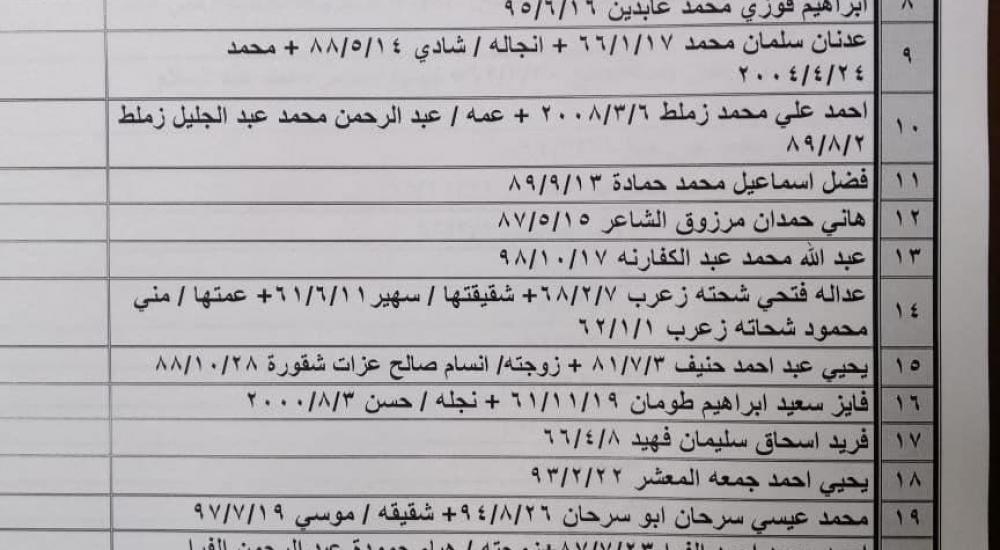 ٨ ابراهيم فوزي محمد عابدين ٩٥/٦/١٦
٩ عدنان سلمان محمد ٦٦/١/١٧ + انجاله / شادي ٨٨/٥/١٤ + محمد
٢٠٠٤/٤/٢٤
١٠ احمد علي محمد زملط ٢٠٠٨/٣/٦ + عمه / عبد الرحمن محمد عبد الجليل زملط
٨٩/٨/٢
١١ فضل اسماعيل محمد حمادة ٨٩/٩/١٣
١٢ هاني حمدان مرزوق الشاعر ٨٧/٥/١٥
١٣ عبد الله محمد عبد الكفارنه ٩٨/١٠/١٧
١٤ عداله فتحي شحته زعرب ٦٨/٢/٧+ شقيقتها / سهير ٦١/٦/١١+ عمتها / مني
محمود شحاته زعرب ٦٢/١/١
١٥ يحيي عبد احمد حنيف ٨١/٧/٣ + زوجته/ انسام صالح عزات شقورة ٨٨/١٠/٢٨
١٦ فايز سعيد ابراهيم طومان ٦١/١١/١٩ + نجله / حسن ٢٠٠٠/٨/٣
١٧ فريد اسحاق سليمان فهيد ٦٦/٤/٨
١٨ يحيي احمد جمعه المعشر ٩٣/٢/٢٢
١٩ محمد عيسي سرحان ابو سرحان ٩٤/٨/٢٦+ شقيقه / موسي ٩٧/٧/١٩
٨٧/٧/٢٣+ زوجته /